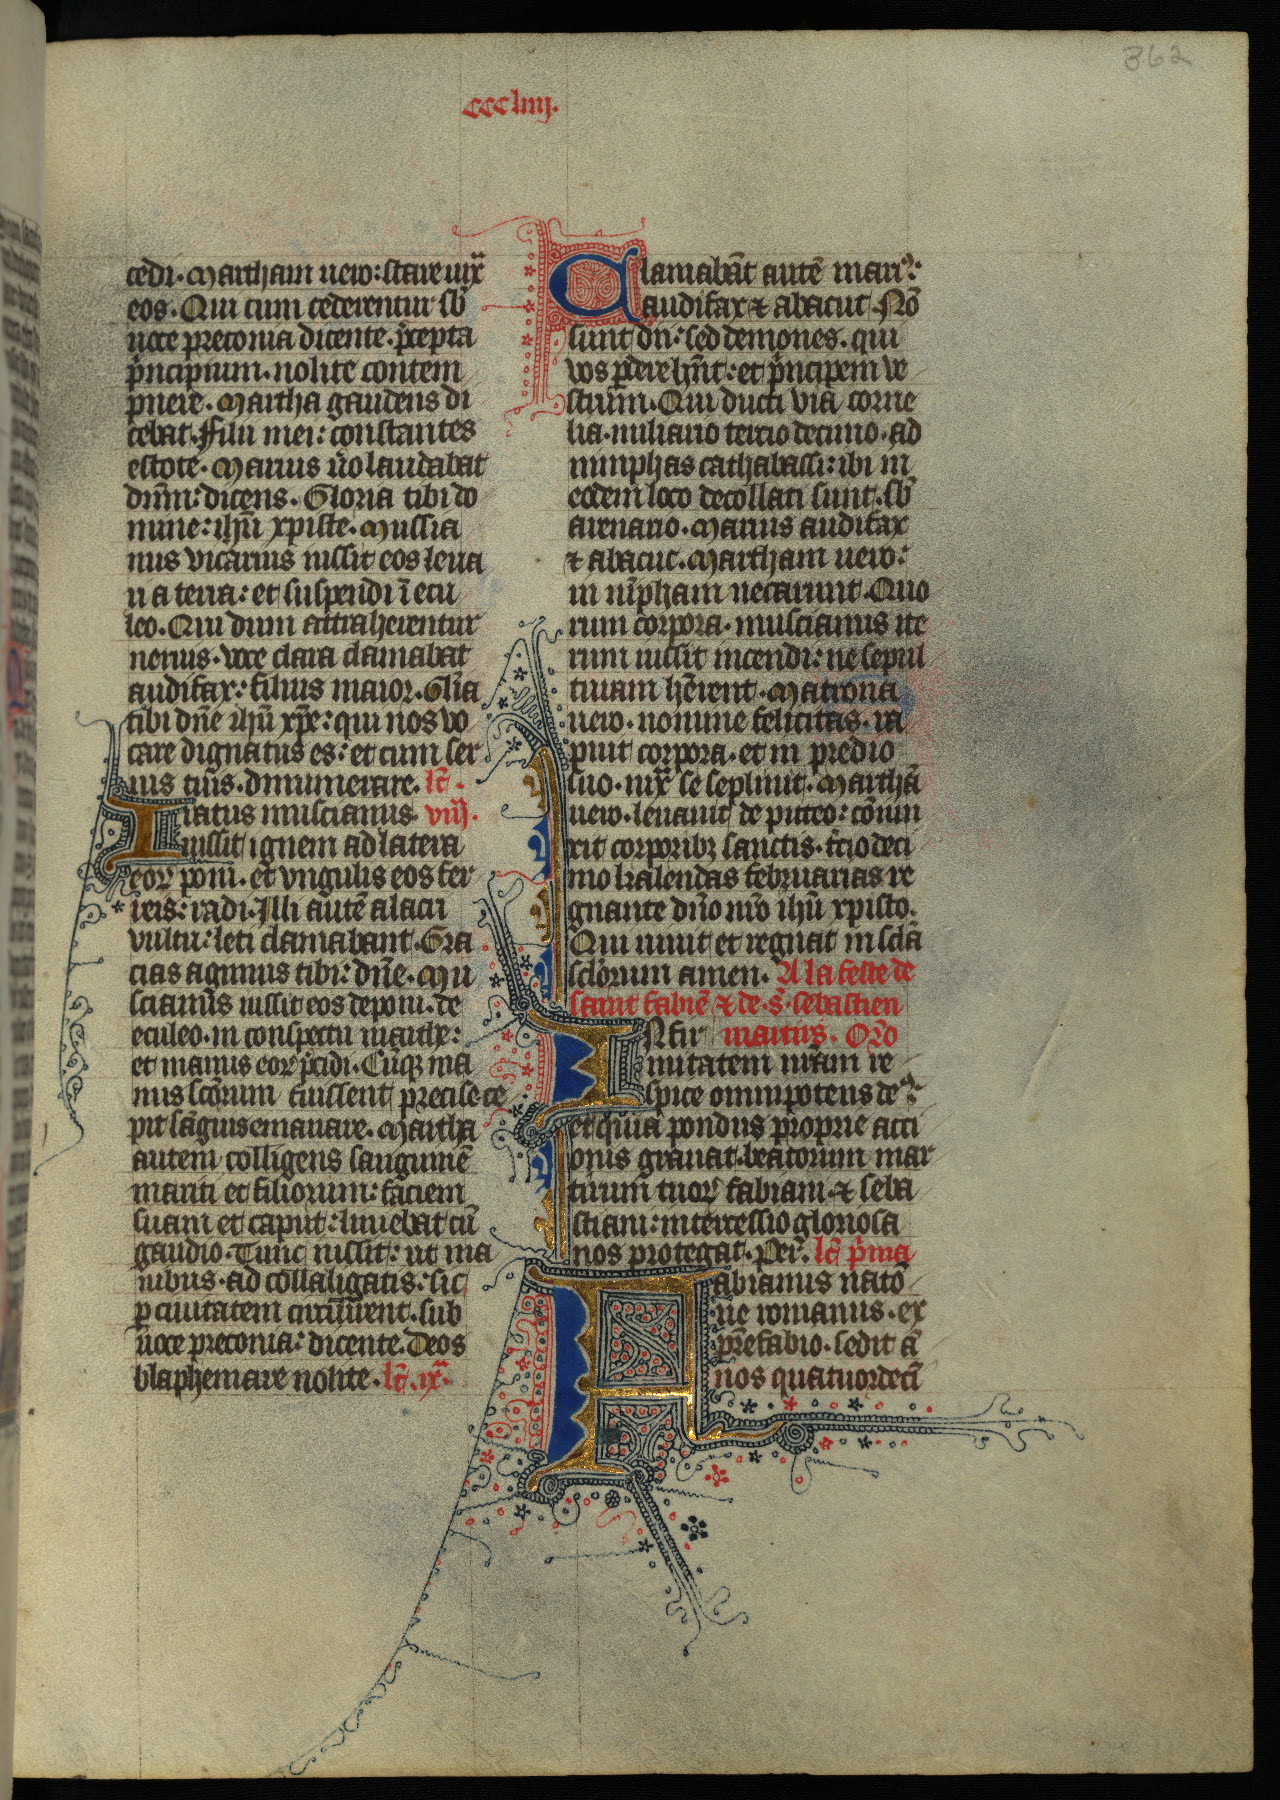 362
cccliiij.
cedi. Martham uero: stare iux̄
eos. Qui cum cederentur sb̄
uoce preconia dicente. p̄cepta
p̄ncipium. nolite contem
pnere. Martha gaudens di
cebat. Filii mei: constantes
estote. Marius ūo laudabat
dnm̄: dicens. Gloria tibi do
mine: ihū xpiste. Mussia
nus vicarius iussit eos leua
ri a terra: et suspendi ī ecu
leo. Qui dum attraherentur
neruis. uoce clara clamabat
audifax: filius maior. Gl̄ia
tibi dn̄e ihū xp̄e: qui nos vo
care dignatus es: et cum ser
uis tuis. dinumerare. lc̄.
Iratus muscianus. viij.
iussit ignem ad latera
eoꝝ poni. et vngulis eos fer
reis: radi. Illi autē alacri
vultu: leti clamabant. Gra
cias agimus tibi: dn̄e. Mu
scianus iussit eos deponi. de
eculeo. in conspectu marthe:
et manus eoꝝ p̄cidi. Cūqꝫ ma
nus scōrum fuissent precise: ce
pit sāguis emanare. Martha
autem colligens sanguinē
mariti et filiorum: faciem
suam et caput: liniebat cū
gaudio. Tunc iussit: ut ma
nibus. ad colla ligatis: sic
ꝑ ciuitatem circūirent. sub
uoce preconia: dicente. Deos
blasphemare nolite. lc̄. ix̄.
Clamabāt autē mari9:
audifax ⁊ abacuc. Nō
sunt dii: sed demones. qui
vos ꝑdere hn̄t: et p̄ncipem ve
strum. Qui ducti viā corne
lia. miliario tercio decimo. ad
nimphas cathabassi: ibi in
eodem loco decollati sunt. sb̄
arenario. Marius audifax
⁊ abacuc. Martham uero:
in nīpham necarunt. Quo
rum corpora. muscianus ite
rum iussit incendi: ne sepul
turam hēent. Matrona
uero. nomine felicitas. ra
puit corpora. et in predio
suo. iux̄ se sepliuit. Marthā
uero. leuauit de puteo: cōiun
xit corporibꝫ sanctis. t̄cio deci
mo kalendas februarias re
gnante dn̄o nr̄o ihū xpisto.
Qui uiuit et regnat in sclā
sclōrum amen. A la feste de
saint fabiē ⁊ de. s̄. sebastien
INfir martirs. Or̄o
mitatem nr̄am re
spice omnipotens de9:
et quia pondus proprie acti
onis grauat. beatorum mar
tirum tuoꝝ fabiani. ⁊ seba
stiani: intercessio gloriosa
nos protegat. Per̄. lc̄ p̄ma
Fabianus natō
ne romanus. ex
pr̄e fabio. sedit ā
nos quatuordecī